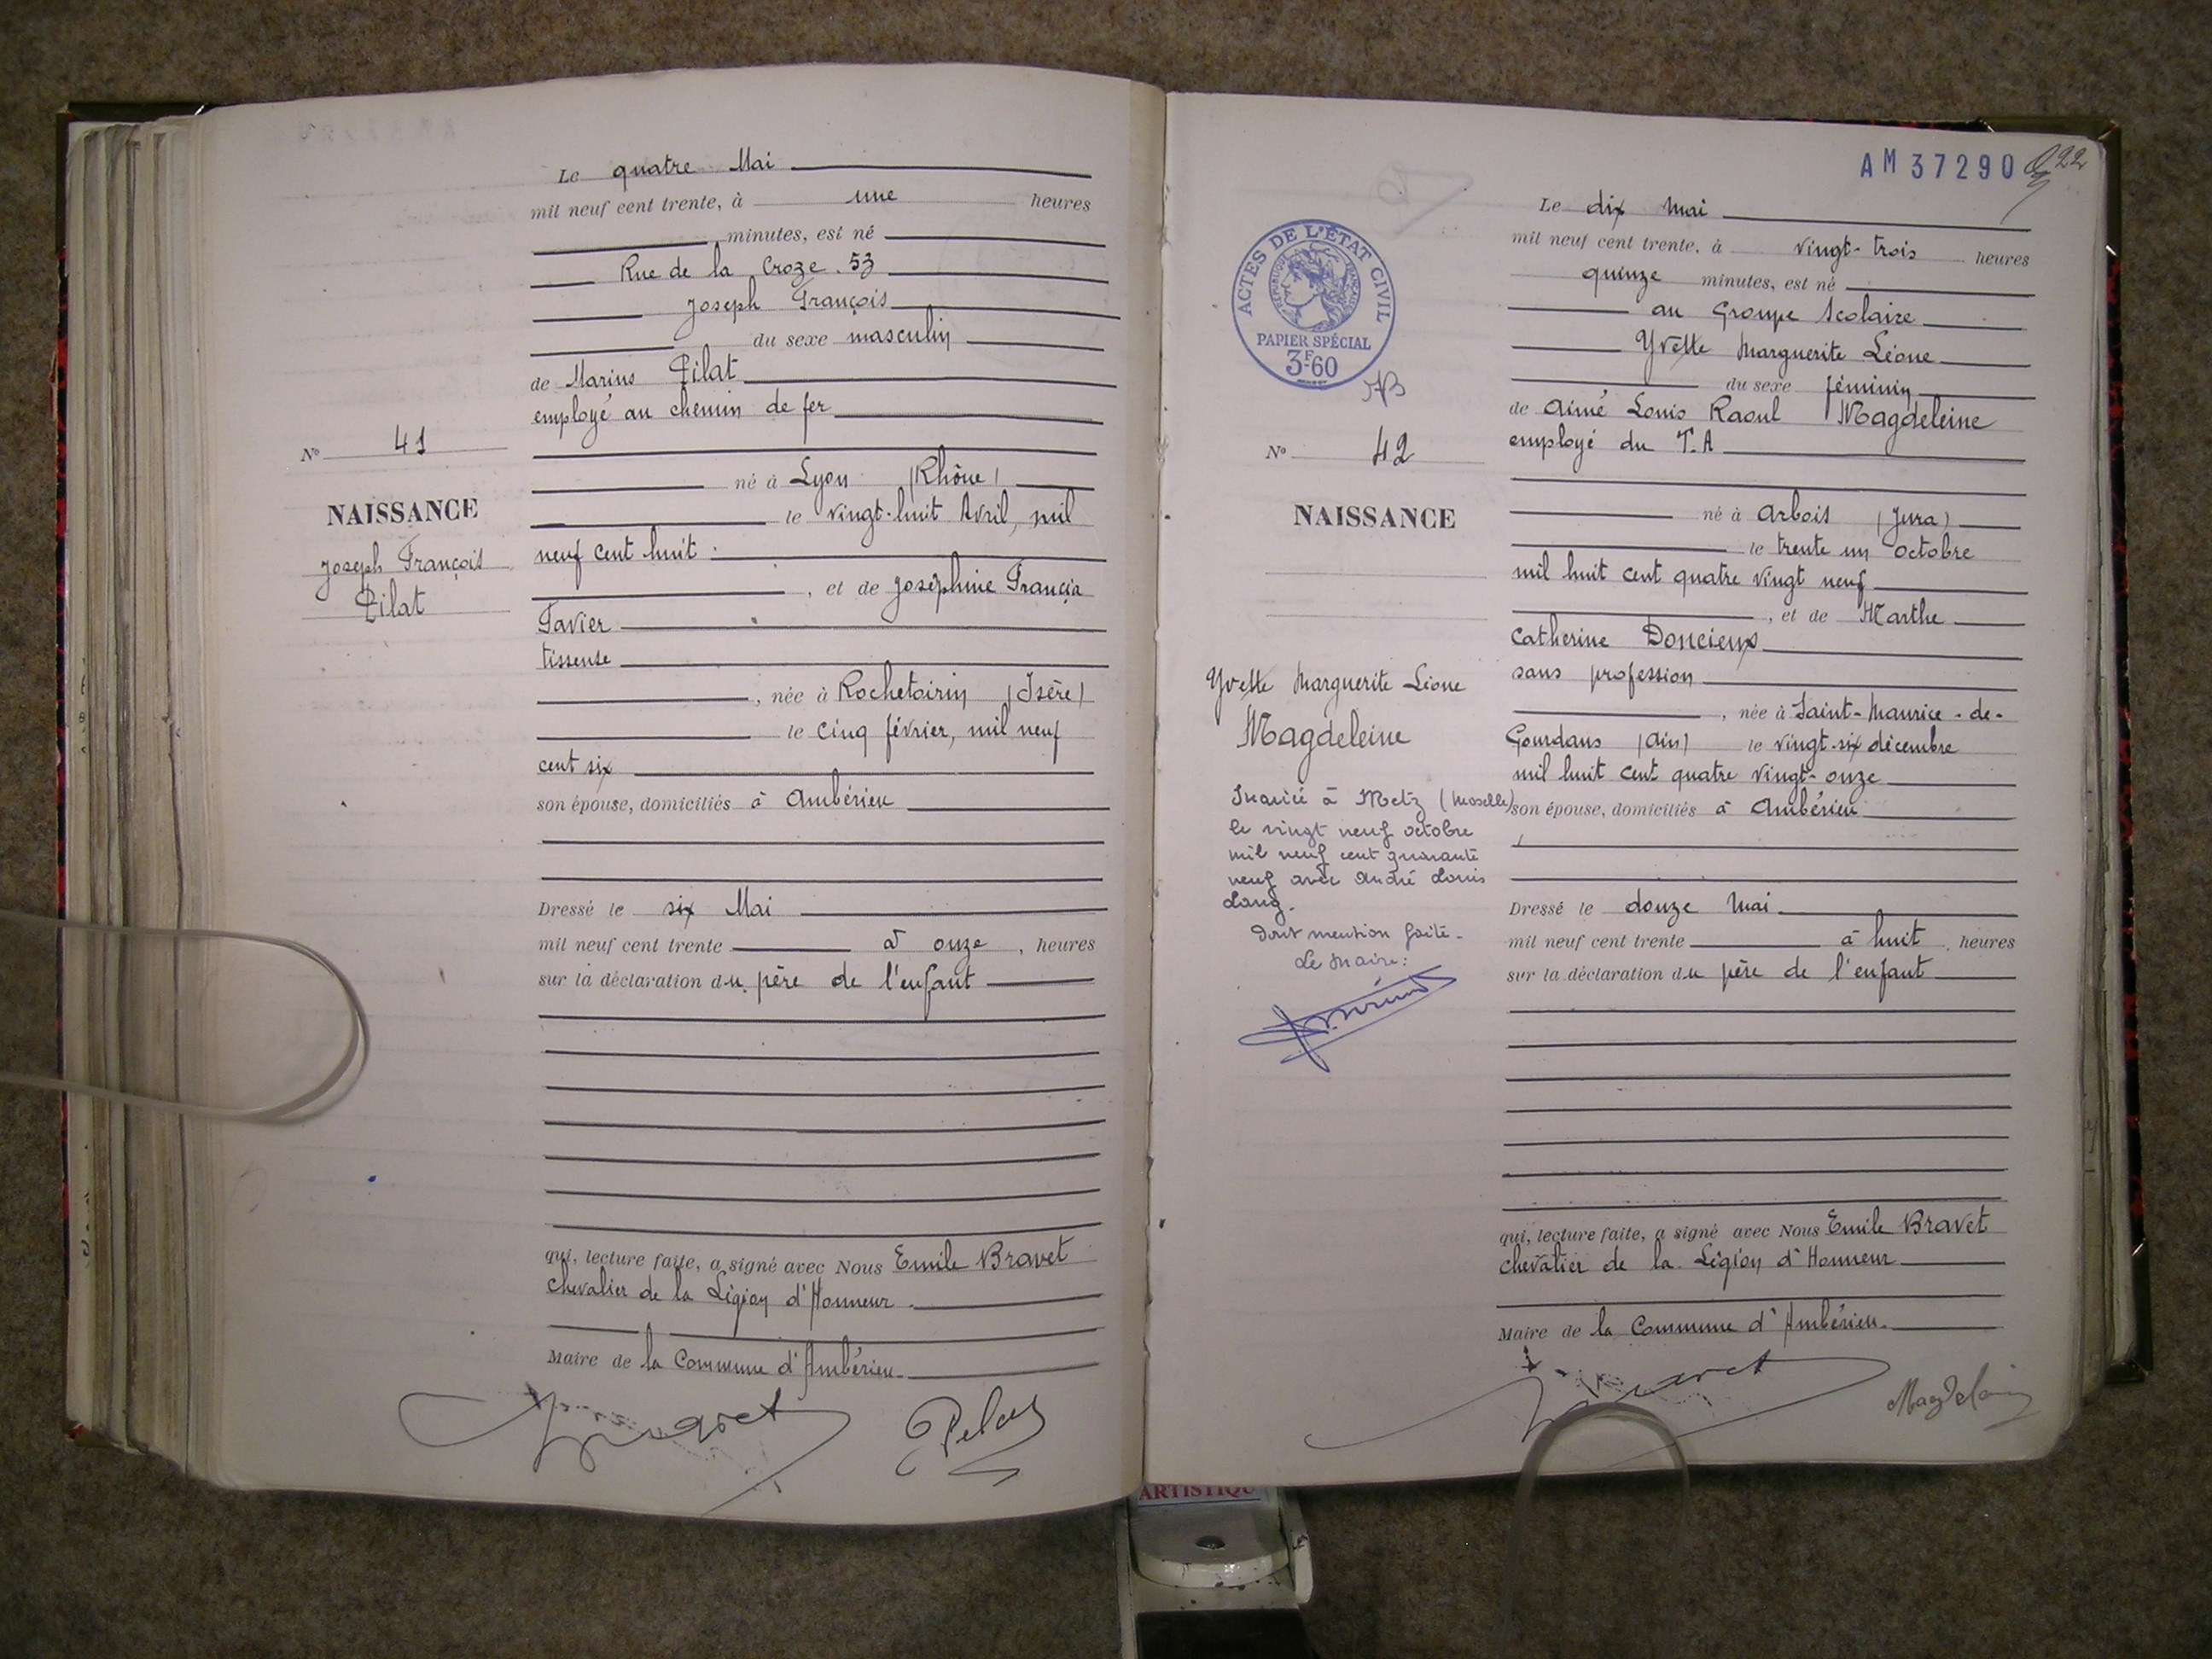 Le quatre Mai
mil neuf cent trente, à une heures
minutes, est né
Rue de la Croze . 53
Joseph François
du sexe masculin
de Marius Pilat
employé au chemin de fer
né à Lyon (Rhône)
le vingt-huit Avril, mil
neuf cent huit .
, et de Joséphine Francia
Favier
tisseuse
, née à Rochetoirin (Isère)
le cinq février, mil neuf
cent six
son épouse, domiciliés à Ambérieu
Dressé le six Mai
mil neuf cent trente à onze , heures
sur la déclaration du père de l'enfant
qui, lecture faite, a signé avec Nous Emile Bravet
chevalier de la Légion d'Honneur .
Maire de la Commune d'Ambérieu.
N° 41
NAISSANCE
Joseph François
Pilat
AM 37290
22
ACTES DE L'ÉTAT CIVIL
RÉPUBLIQUE FRANÇAISE
PAPIER SPÉCIAL
3F60
N° 42
NAISSANCE
Yvette Marguerite Léone
Magdeleine
Marié à Metz (Moselle)
le vingt neuf octobre
mil neuf cent quarante
neuf avec André Louis
Lang.
Dont mention faite.
Le Maire:
Le dix Mai
mil neuf cent trente, à vingt-trois heures
quinze minutes, est né
au Groupe Scolaire
Yvette Marguerite Léone
du sexe féminin
de Aimé Louis Raoul Magdeleine
employé du T.A
né à Arbois (Jura)
le trente un Octobre
mil huit cent quatre vingt neuf
, et de Marthe
Catherine Doncieux
sans profession
, née à Saint-Maurice-de-
Gourdans (Ain) le vingt-six décembre
mil huit cent quatre vingt-onze
son épouse, domiciliés à Ambérieu
Dressé le douze Mai
mil neuf cent trente à huit , heures
sur la déclaration du père de l'enfant
qui, lecture faite, a signé avec Nous Emile Bravet
chevalier de la Légion d'Honneur
Maire de la Commune d'Ambérieu.
ARTISTIQU